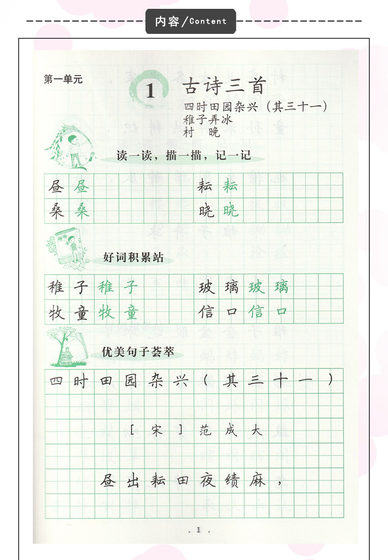 内容/Content
第一单元
1 古诗三首
四时田园杂兴（其三十一）
稚子弄冰
村 晚
读一读，描一描，记一记
昼 昼 耘 耘
桑 桑 晓 晓
好词积累站
稚子 稚子 玻璃 玻璃
牧童 牧童 信口 信口
优美句子荟萃
四时田园杂兴（其三十一）
［宋］范成大
昼出耘田夜绩麻，
. 1 .